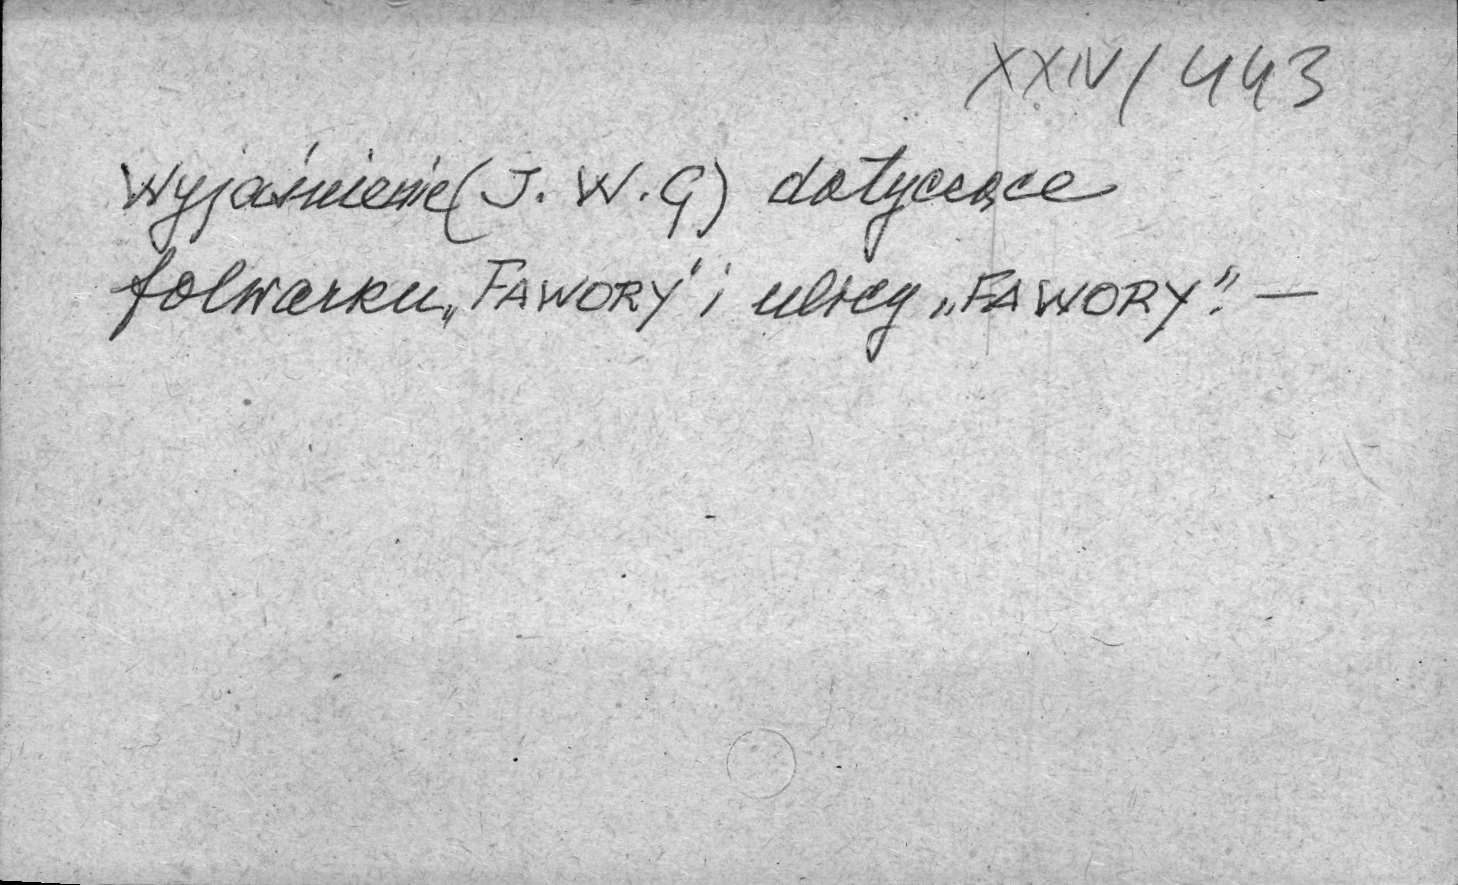 XXIV/443
Wyjaśnienie (J. W. G) dotyczące
folwarku „FAWORY" i ulicy „FAWORY". —